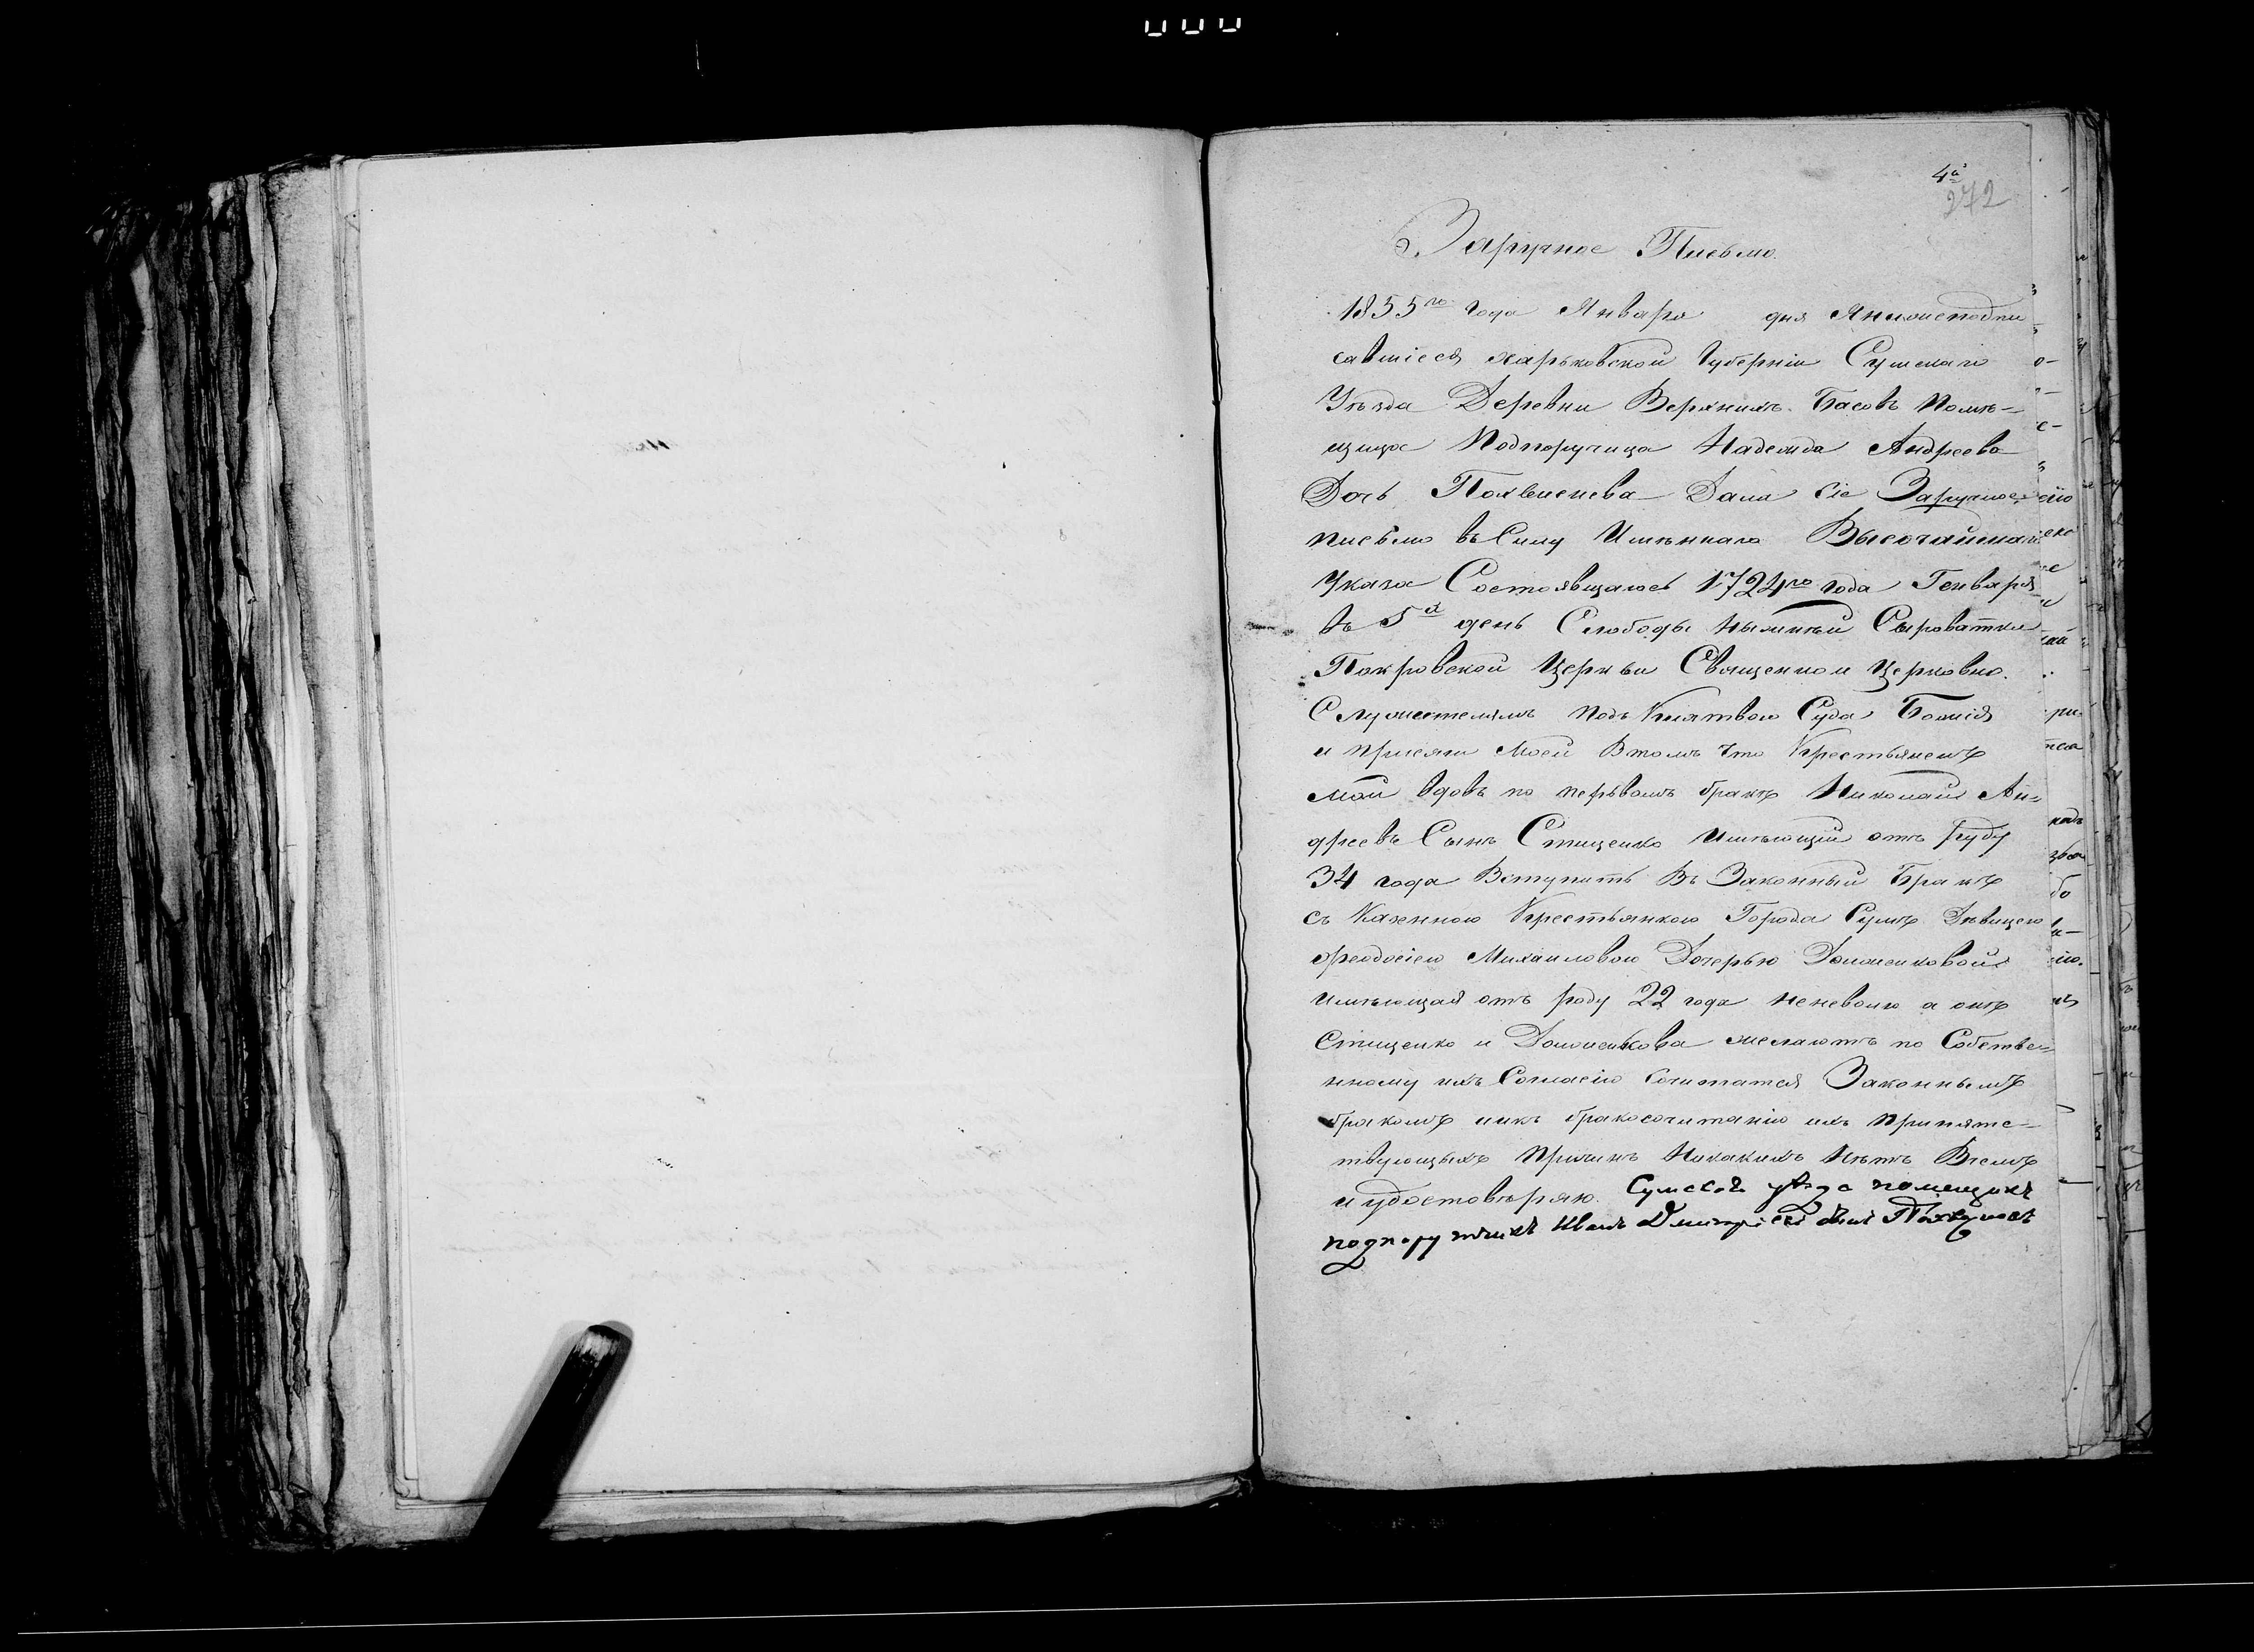 4а
272
Заручное Письмо.
1855го года Января дня Янижеподпи-
савшіеся харьковской Губерніи Сумскаго
Уѣзда Деревни Верхнихъ Басовъ Помѣ-
щица Подпоручица Надежда Андреева
Дочь Похвиснева Дала сіе Заручное
письмо въ Силу Имѣннаго Высочайшаго
Указа Состоявщагось 1724го года Генваря
въ 5й день Слободы Ныжнѣй Сыроватки
Покровской Церкви Священном Церковно.
Служетелямъ подъ Клятвою Суда Божія
и присяги Моей Втомъ что Крестьянемъ
мой вдовъ по перьвомъ бракѣ Николай Ан-
дреевъ Сынъ Стищенко Имѣющій отъ руду
34 года Вступить Въ Законный Бракъ
съ Казенною Крестьянкою Города Сумъ Дѣвицею
Феодосіею Михаиловою Дочерью Домженковой
имѣющая отъ роду 22 года неневолю а онѣ
Стищенко и Домженькова желаютъ по Собстве-
нному ихъ Согласію Сочитатся Законнымъ
бракомъ никъ бракосочитанію ихъ припятс-
твующыхъ Причинъ Никакихъ Нѣтъ Вчемъ
и удостовѣряю. Сумскаго уѣзда помещикъ
подпоручикъ Иванъ Дмитріевъ сынъ